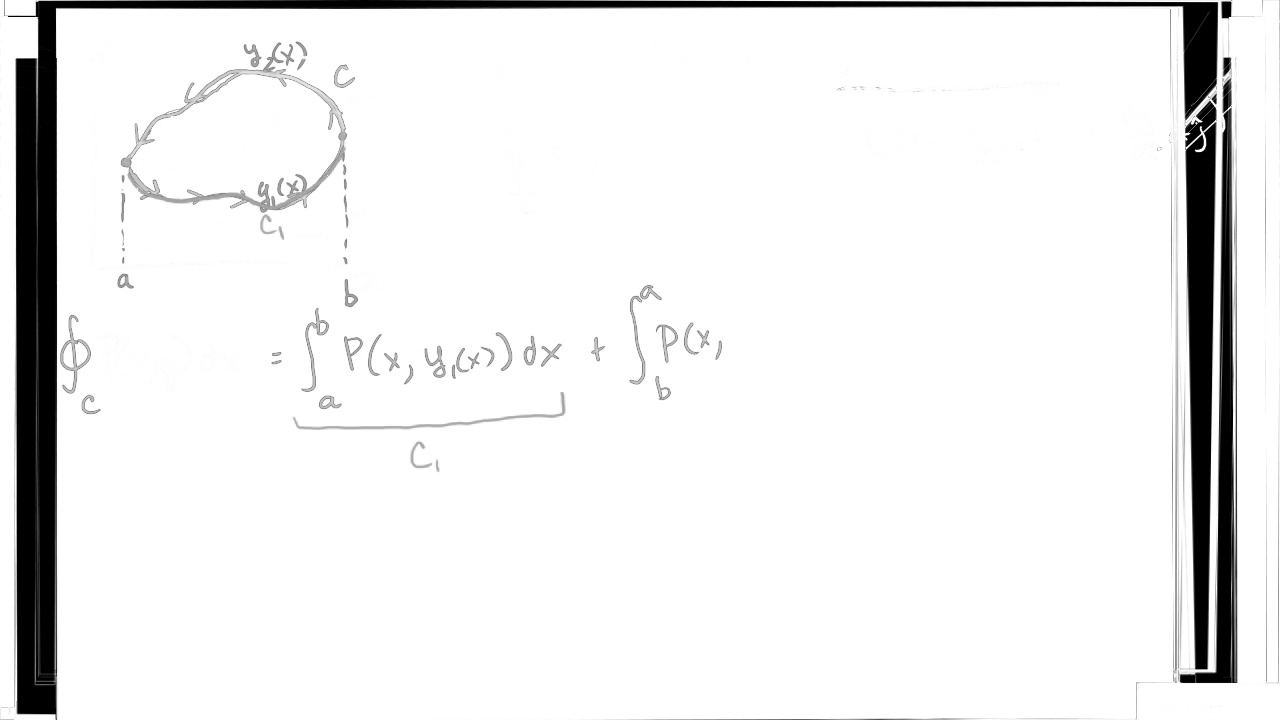 y₂(x)
C
y₁(x)
C₁
a
b
∮_C = ∫_a^b P(x, y₁(x)) dx + ∫_b^a P(x,
C₁